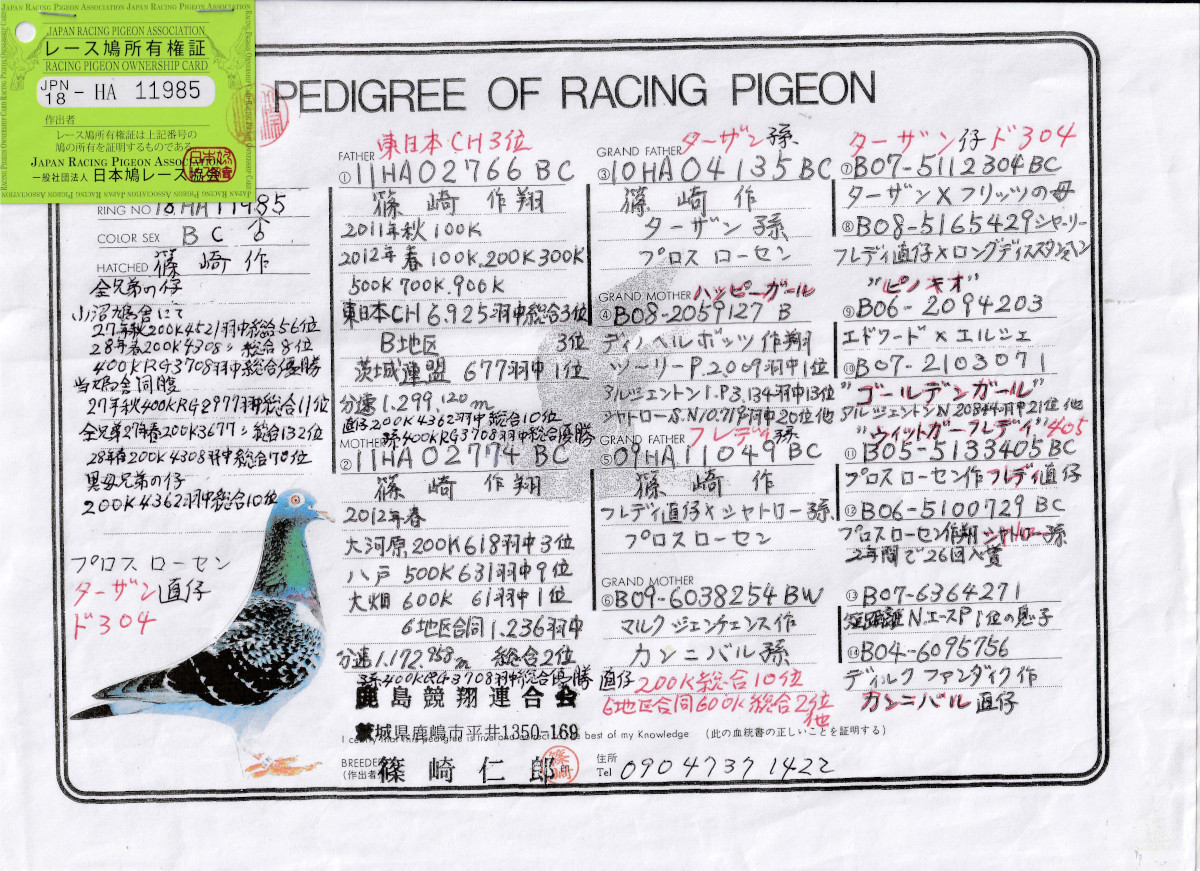 JAPAN RACING PIGEON ASSOCIATION
レース鳩所有権証
RACING PIGEON OWNERSHIP CARD
JPN 18 - HA 11985
作出者
レース鳩所有権証は上記番号の
鳩の所有を証明するものである
JAPAN RACING PIGEON ASSOCIATION
一般社団法人 日本鳩レース協会
PEDIGREE OF RACING PIGEON
RING NO 18HA11985
COLOR SEX BC ♂
HATCHED 篠崎 作
全兄弟の仔
小沼鳩舎にて
27年秋200K4521羽中総合56位
28年春200K4308〃総合8位
400KRG3708羽中総合優勝
当鳩舎同腹
27年秋400KRG2977羽中総合11位
全兄弟27年春200K3677〃総合132位
28年春200K4308羽中総合70位
異母兄弟の仔
200K4362羽中総合10位
プロス ローセン
ターザン直仔
ド304
東日本CH3位
FATHER
①11HA02766 BC
篠崎 作翔
2011年秋100K
2012年春100K,200K300K
500K 700K,900K
東日本CH 6.925羽中総合3位
B地区 3位
茨城連盟 677羽中1位
分速1.299,120m
直仔200K4362羽中総合10位
孫400KRG3708羽中総合優勝
MOTHER
②11HA02774 BC
篠崎 作翔
2012年春
大河原200K618羽中3位
八戸 500K631羽中9位
大畑 600K 61羽中1位
6地区合同1.236羽中
分速1.172,958m 総合2位
孫400KRG3708羽中総合優勝
鹿島競翔連合会
茨城県鹿嶋市平井1350-169
BREEDER
(作出者)
篠崎仁郎
GRAND FATHER ターザン孫
③10HA04135 BC
篠崎 作
ターザン孫
プロス ローセン
GRAND MOTHER ハッピーガール
④B08-2059127 B
ディノヘルボッツ作翔
ツーリーP.2009羽中1位
アルジェントンI.P3,134羽中13位
シャトローS.N10.719羽中20位他
GRAND FATHER フレディ孫
⑤09HA11049 BC
篠崎 作
フレディ直仔×シャトロー孫
プロス ローセン
GRAND MOTHER
⑥B09-6038254 BW
マルク ジェンチェンス作
カンニバル孫
直仔200K総合10位
6地区合同600K総合2位
他
best of my Knowledge (此の血統書の正しいことを証明する)
住所
Tel 090 4737 1422
ターザン仔 ド304
⑦B07-5112304 BC
ターザン×フリッツの母
⑧B08-5165429シャーリー
フレディ直仔×ロングディスタンスヘン
"ピノキオ"
⑨B06-2094203
エドワード×エルシェ
⑩B07-2103071
"ゴールデンガール"
アルジェントンN20844羽中21位他
"ウィットガーフレディ"405
⑪B05-5133405 BC
プロス ローセン作フレディ直仔
⑫B06-5100729 BC
プロスローセン作翔シャトロー孫
2年間で26回入賞
⑬B07-6364271
短距離N.エースP1位の息子
⑭B04-6095756
ディルク ファンダイク作
カンニバル直仔